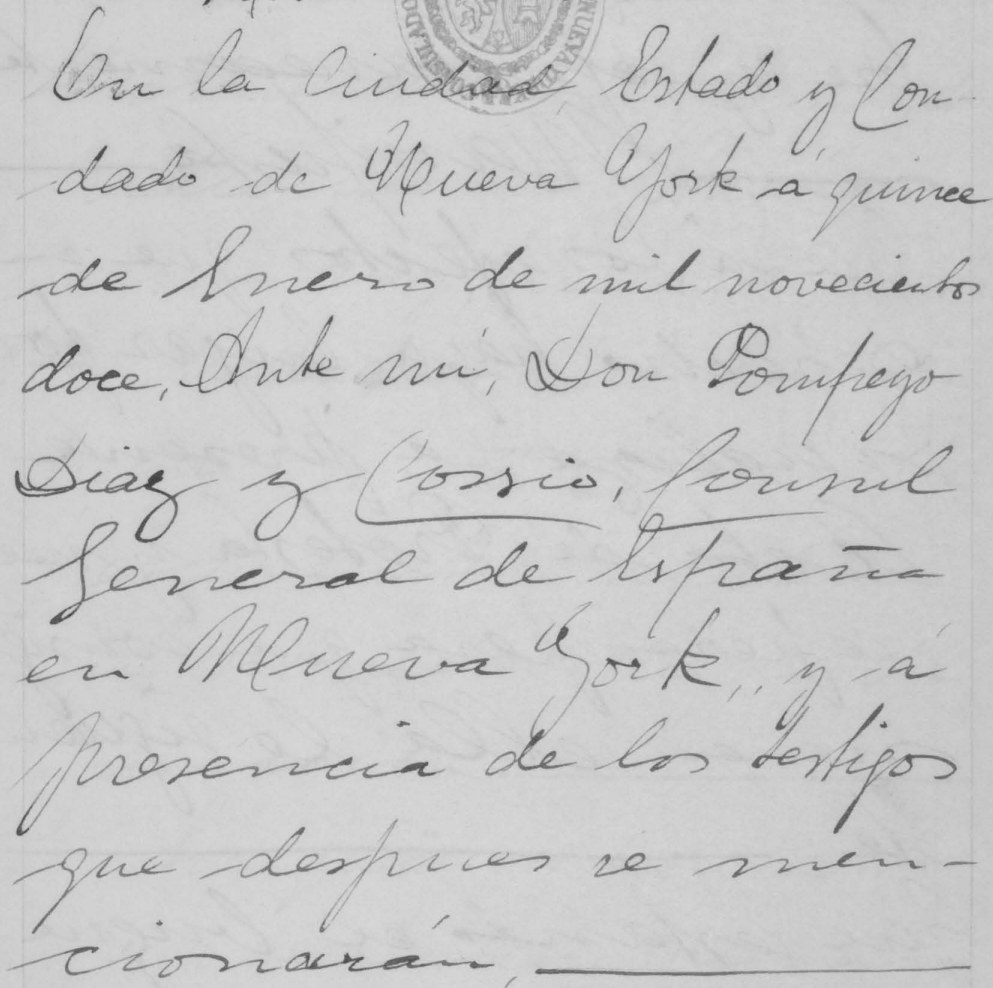 En la Ciudad, Estado y Con-
dado de Nueva York á quince
de Enero de mil novecientos
doce, Ante mi, Don Pompeyo
Diaz y Cossio, Consul
General de España
en Nueva York, y á
presencia de los testigos
que despues se men-
cionarán,